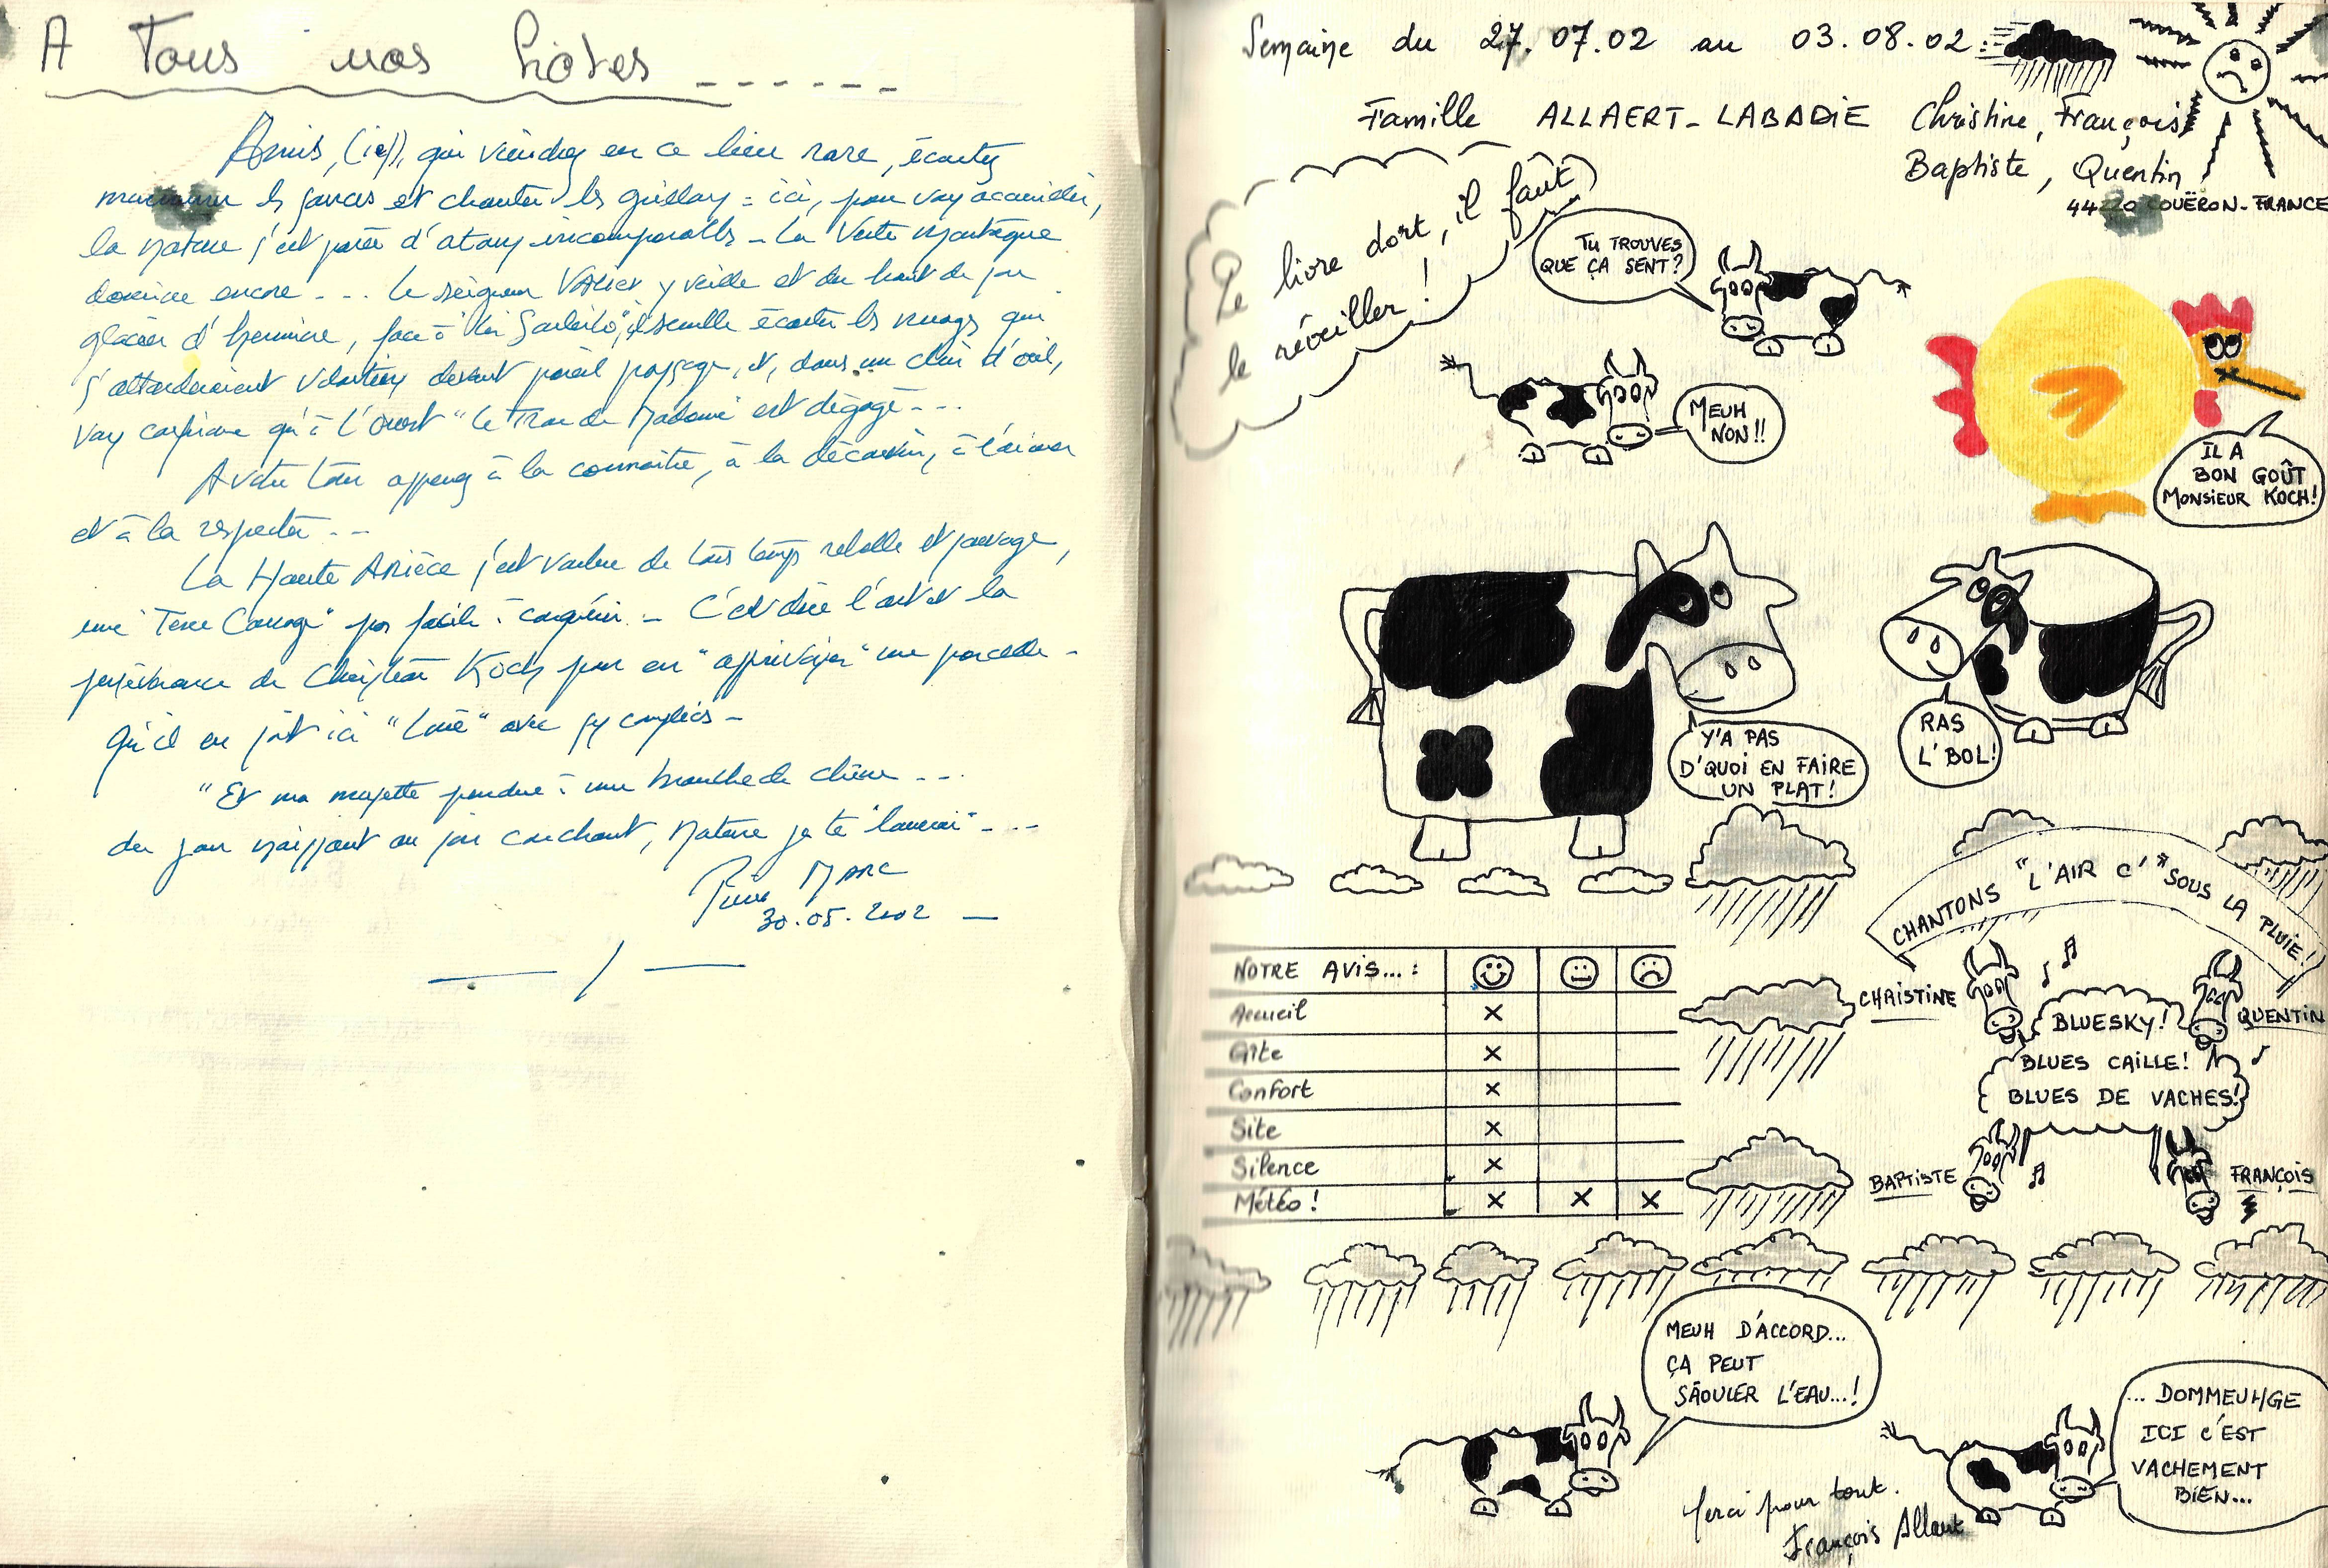 A Tous nos hôtes ------
Amis, (ies), qui viendrez en ce lieu rare, écoutez
murmurer les sources et chanter les grillons : ici, pour vous accueillir,
la nature s'est parée d'atours incomparables - La Verte Montagne
domine encore --- Le seigneur Valier y veille et du haut de son
glacier d'hermine, face à "Loi Sarbilo", il semble écarter les nuages qui
s'attarderaient volontiers devant pareil paysage, et, dans un clin d'œil,
vous confirme qu'à l'Ouest "Le Trou de Madame" est dégagé ---
A votre tour apprenez à la connaître, à la découvrir, à l'aimer
et à la respecter ---
La Haute Ariège s'est voulue de tous temps rebelle et sauvage,
une "Terre Courage" pas facile à conquérir. - C'est dire l'art et la
persévérance de Christian Koch pour en "apprivoiser" une parcelle -
Qu'il en soit ici "Loué" avec ses complices -
"Et ma musette pendue à une branche de chêne ---
du jour naissant au jour couchant, Nature je te "louerai" ---
MARC
30.05.2002 -
Semaine du 27.07.02 au 03.08.02:
Famille ALLAERT-LABADIE Christine, François
Baptiste, Quentin
44220 COUËRON-FRANCE
Le livre dort, il faut
le réveiller !
TU TROUVES
QUE ÇA SENT?
MEUH
NON!!
IL A
BON GOÛT
MONSIEUR KOCH!
Y'A PAS
D'QUOI EN FAIRE
UN PLAT!
RAS
L'BOL!
CHANTONS "L'AIR C'" SOUS LA PLUIE!
NOTRE AVIS...:
Accueil ×
Gîte ×
Confort ×
Site ×
Silence ×
Météo! × × ×
CHRISTINE
QUENTIN
BLUESKY!
BLUES CAILLE!
BLUES DE VACHES!
BAPTISTE
FRANÇOIS
MEUH D'ACCORD...
ÇA PEUT
SÂOULER L'EAU...!
... DOMMEUH/GE
ICI C'EST
VACHEMENT
BIEN...
Merci pour tout.
François Allaert